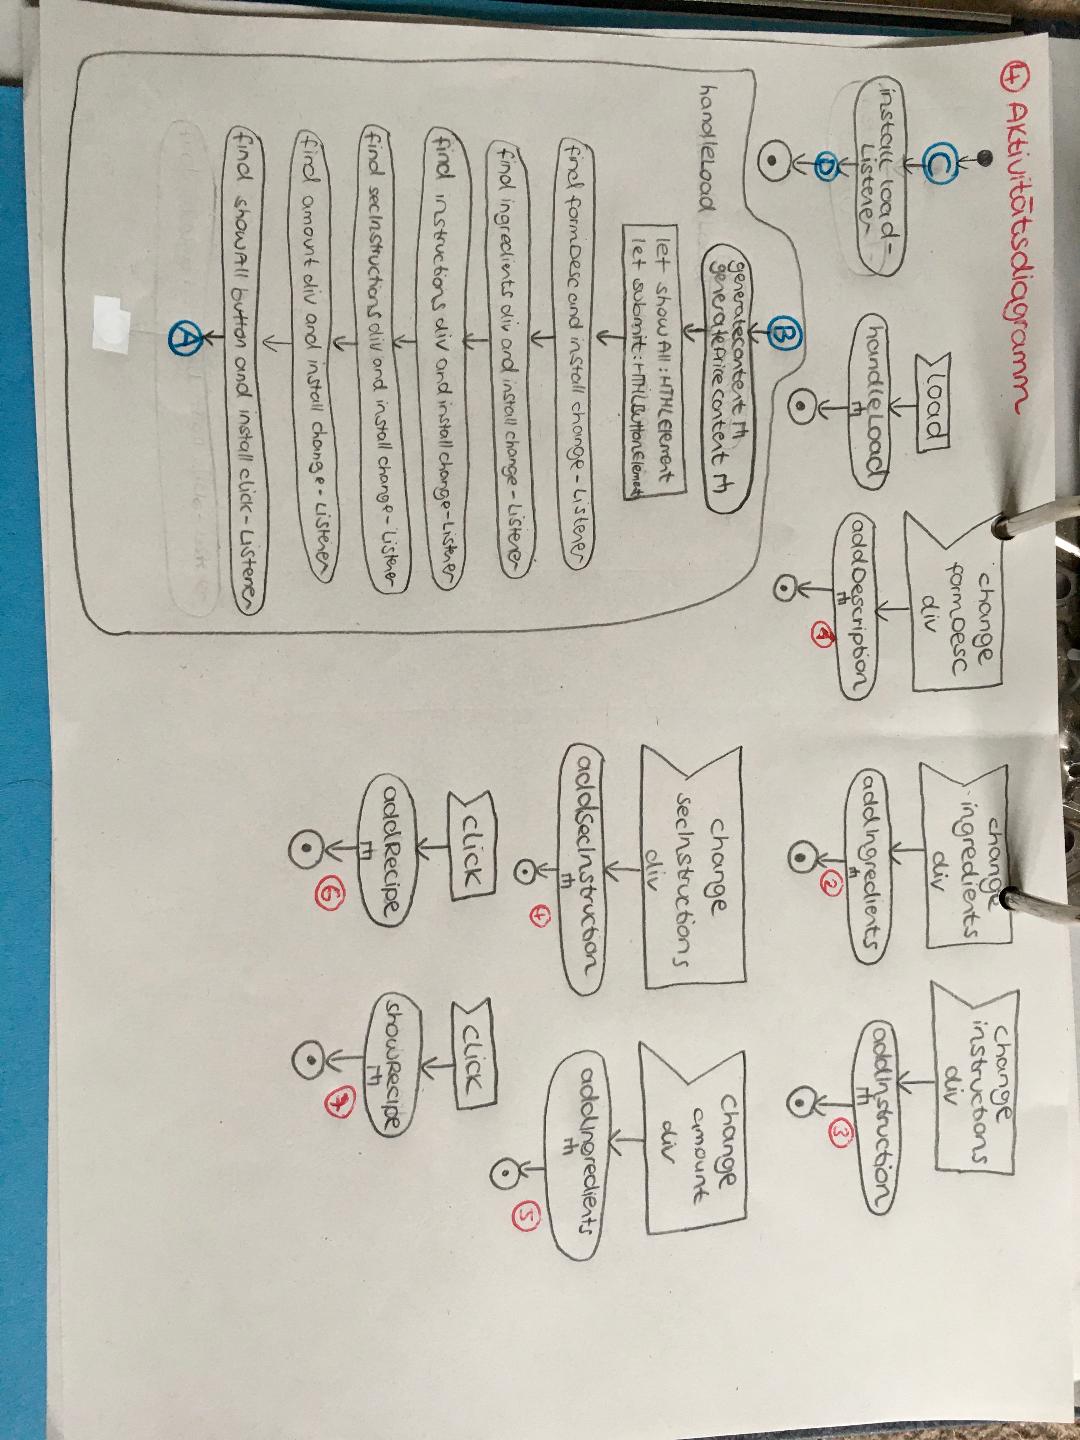 4 Aktivitätsdiagramm
C
install load-
Listener
D
load
handleLoad
change
formDesc
div
addDescription
1
change
ingredients
div
addIngredients
2
change
instructions
div
addInstruction
3
handleLoad
B
generateContent
generatePriceContent
let showAll:HTMLElement
let submit:HTMLButtonElement
find formDesc and install change-Listener
find ingredients div and install change-Listener
find instructions div and install change-Listener
find secInstructions div and install change-Listener
find amount div and install change-Listener
find showAll button and install click-Listener
A
change
secInstructions
div
addSecInstruction
4
change
amount
div
addIngredients
5
click
addRecipe
6
click
showRecipe
7